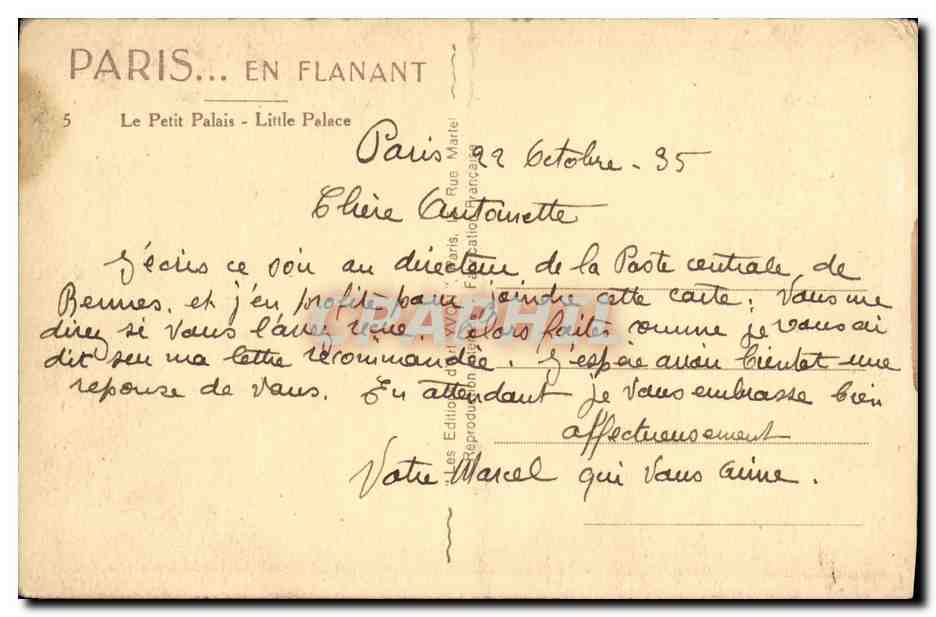 PARIS... EN FLANANT
5 Le Petit Palais - Little Palace
Paris 22 Octobre - 35
Chère Antoinette
J'écris ce soir au directeur de la Poste centrale de
Rennes. et j'en profite pour joindre cette carte. Vous me
direz si vous l'avez reçue. Alors faites comme je vous ai
dit sur ma lettre recommandée. J'espère avoir bientot une
reponse de vous. En attendant je vous embrasse bien
affectueusement
Votre Marcel qui vous aime.
Les Editions d'Art YVON Paris, Rue Martel
Reproduction Fabrication Française
CPARAMA